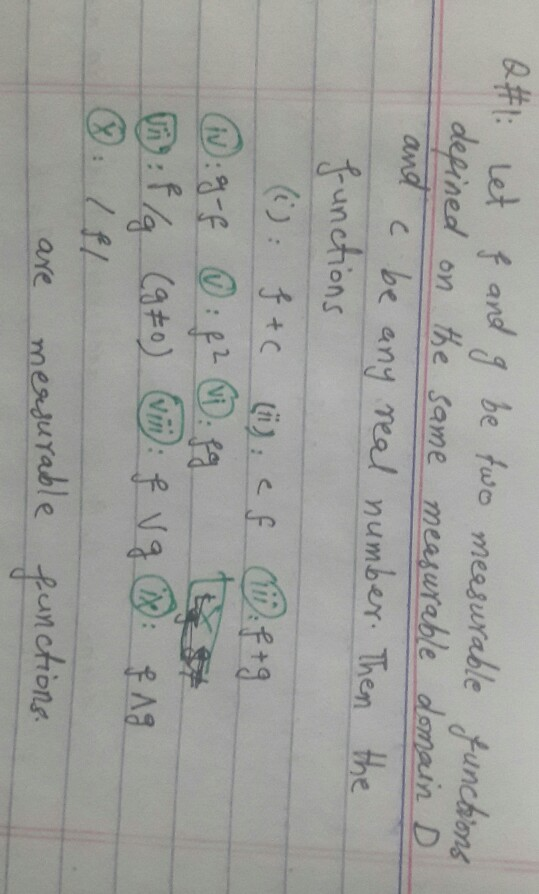 Q#1: Let f and g be two measurable functions
defined on the same measurable domain D
and c be any real number. Then the
functions
(i): f+c (ii): cf (iii): f+g
(iv): g-f (v): f² (vi): fg
(vii): f/g (g≠0) (viii): f∨g (ix): f∧g
(x): |f|
are measurable functions.